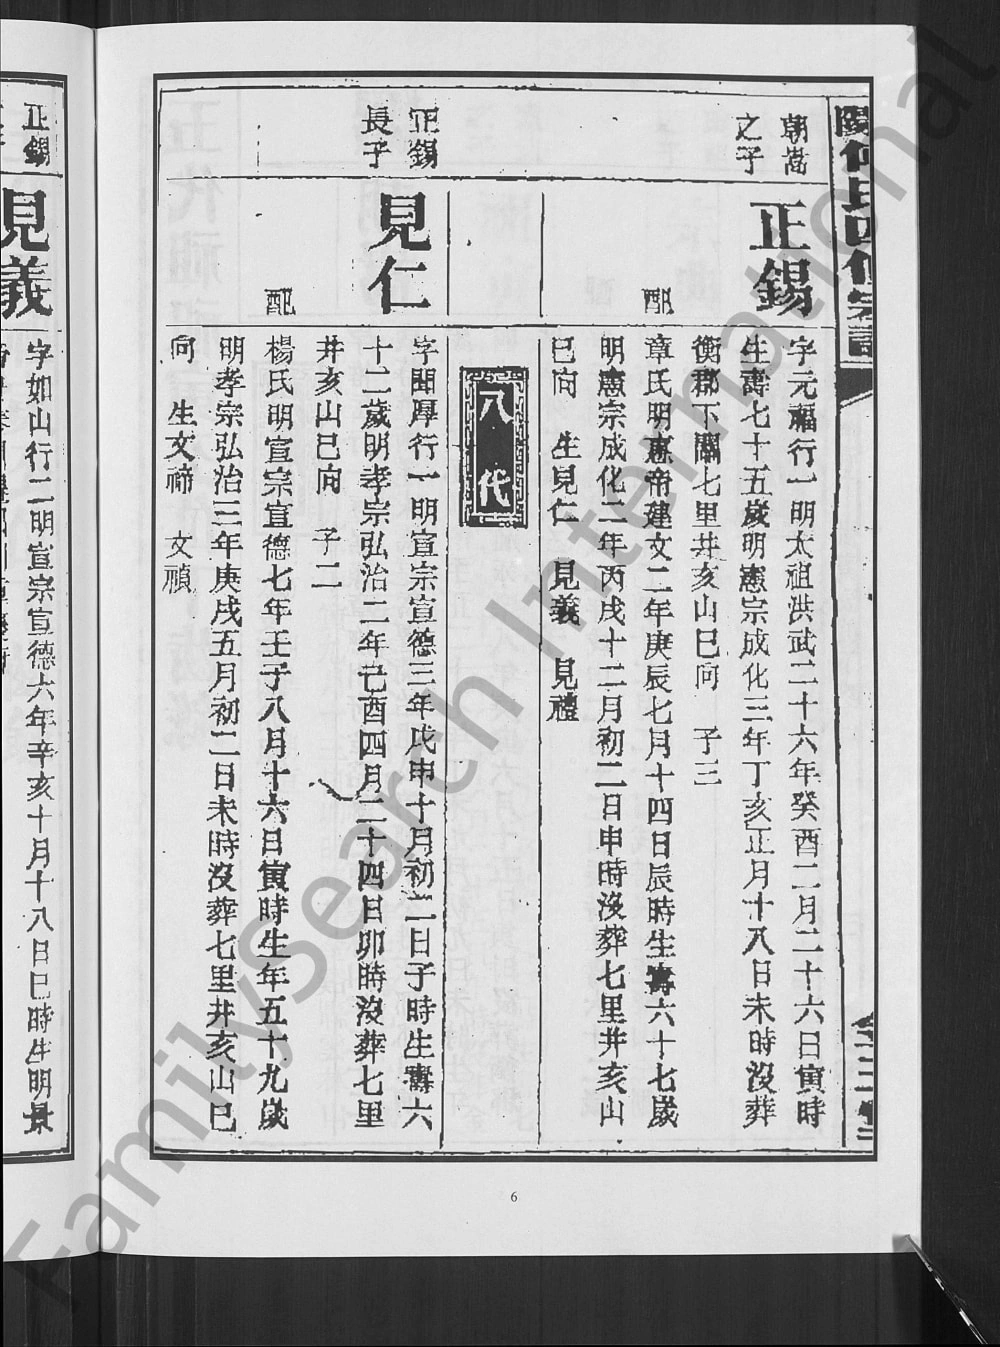 朝嵩
之子
正錫
字元福行一明太祖洪武二十六年癸酉二月二十六日寅時
生壽七十五歲明憲宗成化三年丁亥正月十八日未時沒葬
衡郡下關七里井亥山巳向 子三
配
章氏明惠帝建文二年庚辰七月十四日辰時生壽六十七歲
明憲宗成化二年丙戌十二月初二日申時沒葬七里井亥山
巳向 生見仁 見義 見禮
八代
正錫
長子
見仁
字聞厚行一明宣宗宣德三年戊申十月初二日子時生壽六
十二歲明孝宗弘治二年己酉四月二十四日卯時沒葬七里
井亥山巳向 子二
配
楊氏明宣宗宣德七年壬子八月十六日寅時生年五十九歲
明孝宗弘治三年庚戌五月初二日未時沒葬七里井亥山巳
向 生文禘 文禎
正錫
見義
字如山行二明宣宗宣德六年辛亥十月十八日巳時生明景
6
FamilySearch International